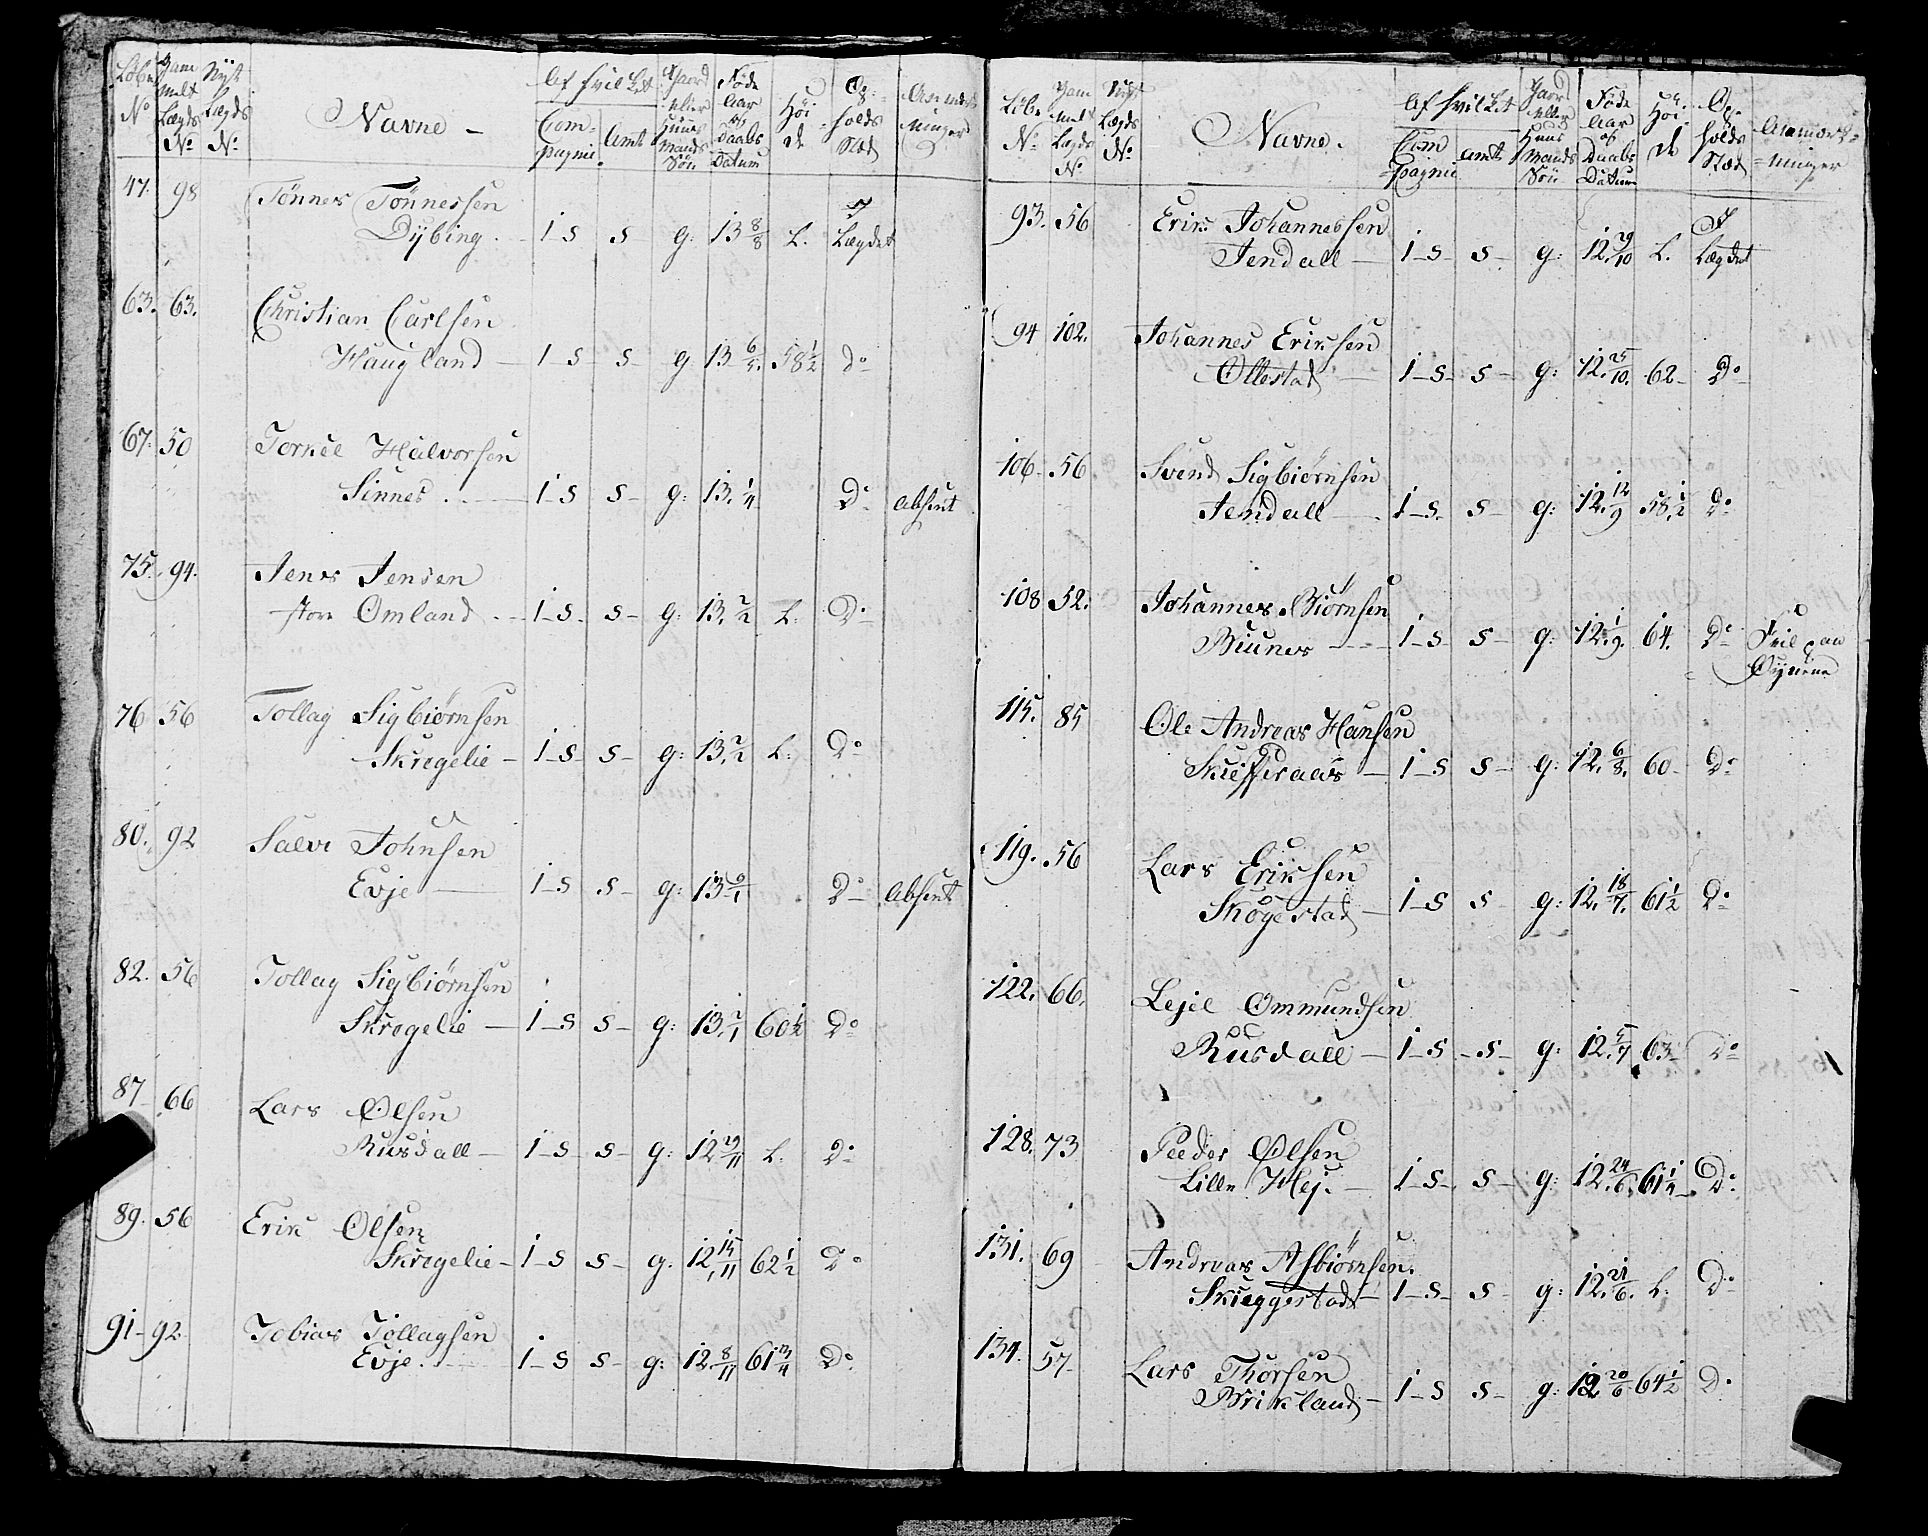 Løbe No | Gam melt Lægds No | Nyt Lægds No | Navne – | Af hvilket Com- pagnie | Amt | Gaard eller Huus mands Søn | Føde Aar og Daabs Datum | Høi de | Op- holds Stæd | Anmærk- ninger
47. 98 Tønnes Tønnessen
Dybing. 1 – s s g: 13 8/8 L. I Lægdet
63. 63. Christian Carlsen
Haugland – 1 s – s – g 13 6/5. 58 1/2 do
67. 50 Torkel Halvorsen
Sinnes. – 1 – s s – g: 13. 1/4 Do absent
75. 94. Jens Jensen
store Omland. – 1 – s. s – g: 13. 2/2 L. Do
76 56 Tollag Sigbiørnsen
Skregelie – 1 – s – s – g: 13. 2/2 L: Do
80. 92 Salve Johnsen
Evje – 1 – s s – g: 13 6/1 Do – absent
82. 56 Tollag Sigbiørnsen
Skregelie – 1 – s s – g: 13. 2/1 60 1/2 Do
87 66 Lars Olsen
Rusdall – 1 – s – s – g: 12 29/11 L. Do
89. 56 Erik Olsen
Skregelie – 1 – s s – g: 12. 15/11 62 1/2 Do
91 – 92 Tobias Tollagsen
Evje. 1 – s s – g: 12. 8/11 61 3/4 Do
Løbe No | Gam melt Lægds No | Nyt Lægds No | Navne. | Af hvilket Com- pagnie | Amt | Gaard eller Huus mands Søn | Føde Aar og Daabs Datum | Høi de | Op- holds Stæd | Anmærk- ninger
93. 56 Erik Johannessen
Jendall – 1 – s – s – g: 12. 29/10 L. I Lægdet
94 102. Johannes Eriksen
Ollestad – 1 – s – s – g: 12. 25/10. 62 – Do
106. 56 Svend Sigbiørnsen
Jendall – 1 – s. s – g: 12. 12/9 58 1/2 do
108 52. Johannes Biørnsen
Biunes – 1 – s s – g: 12. 1/9. 64. Do Feil paa
Øynene
115. 85 Ole Andreas Hansen
Skieffraas – 1 – s s – g: 12. 6/8. 60 – Do
119. 56 Lars Eriksen
Skogestad – 1 – s s – g: 12. 18/7. 61 1/2 Do
122. 66. Lejel Ommundsen
Rusdall – 1 – s – s – g: 12. 5/7 63 – Do
128. 73 Peder Olsen
Lille Hej. – 1 – s s – g: 12. 24/6. 61 1/4 Do
131. 69 Andreas Asbiørnsen.
Skieggestad – 1 – s – s – g: 12. 21/6. L. Do
134. 57 – Lars Thorsen
Birkland – 1 – s s – g: 12 20/6 64 1/2 D.